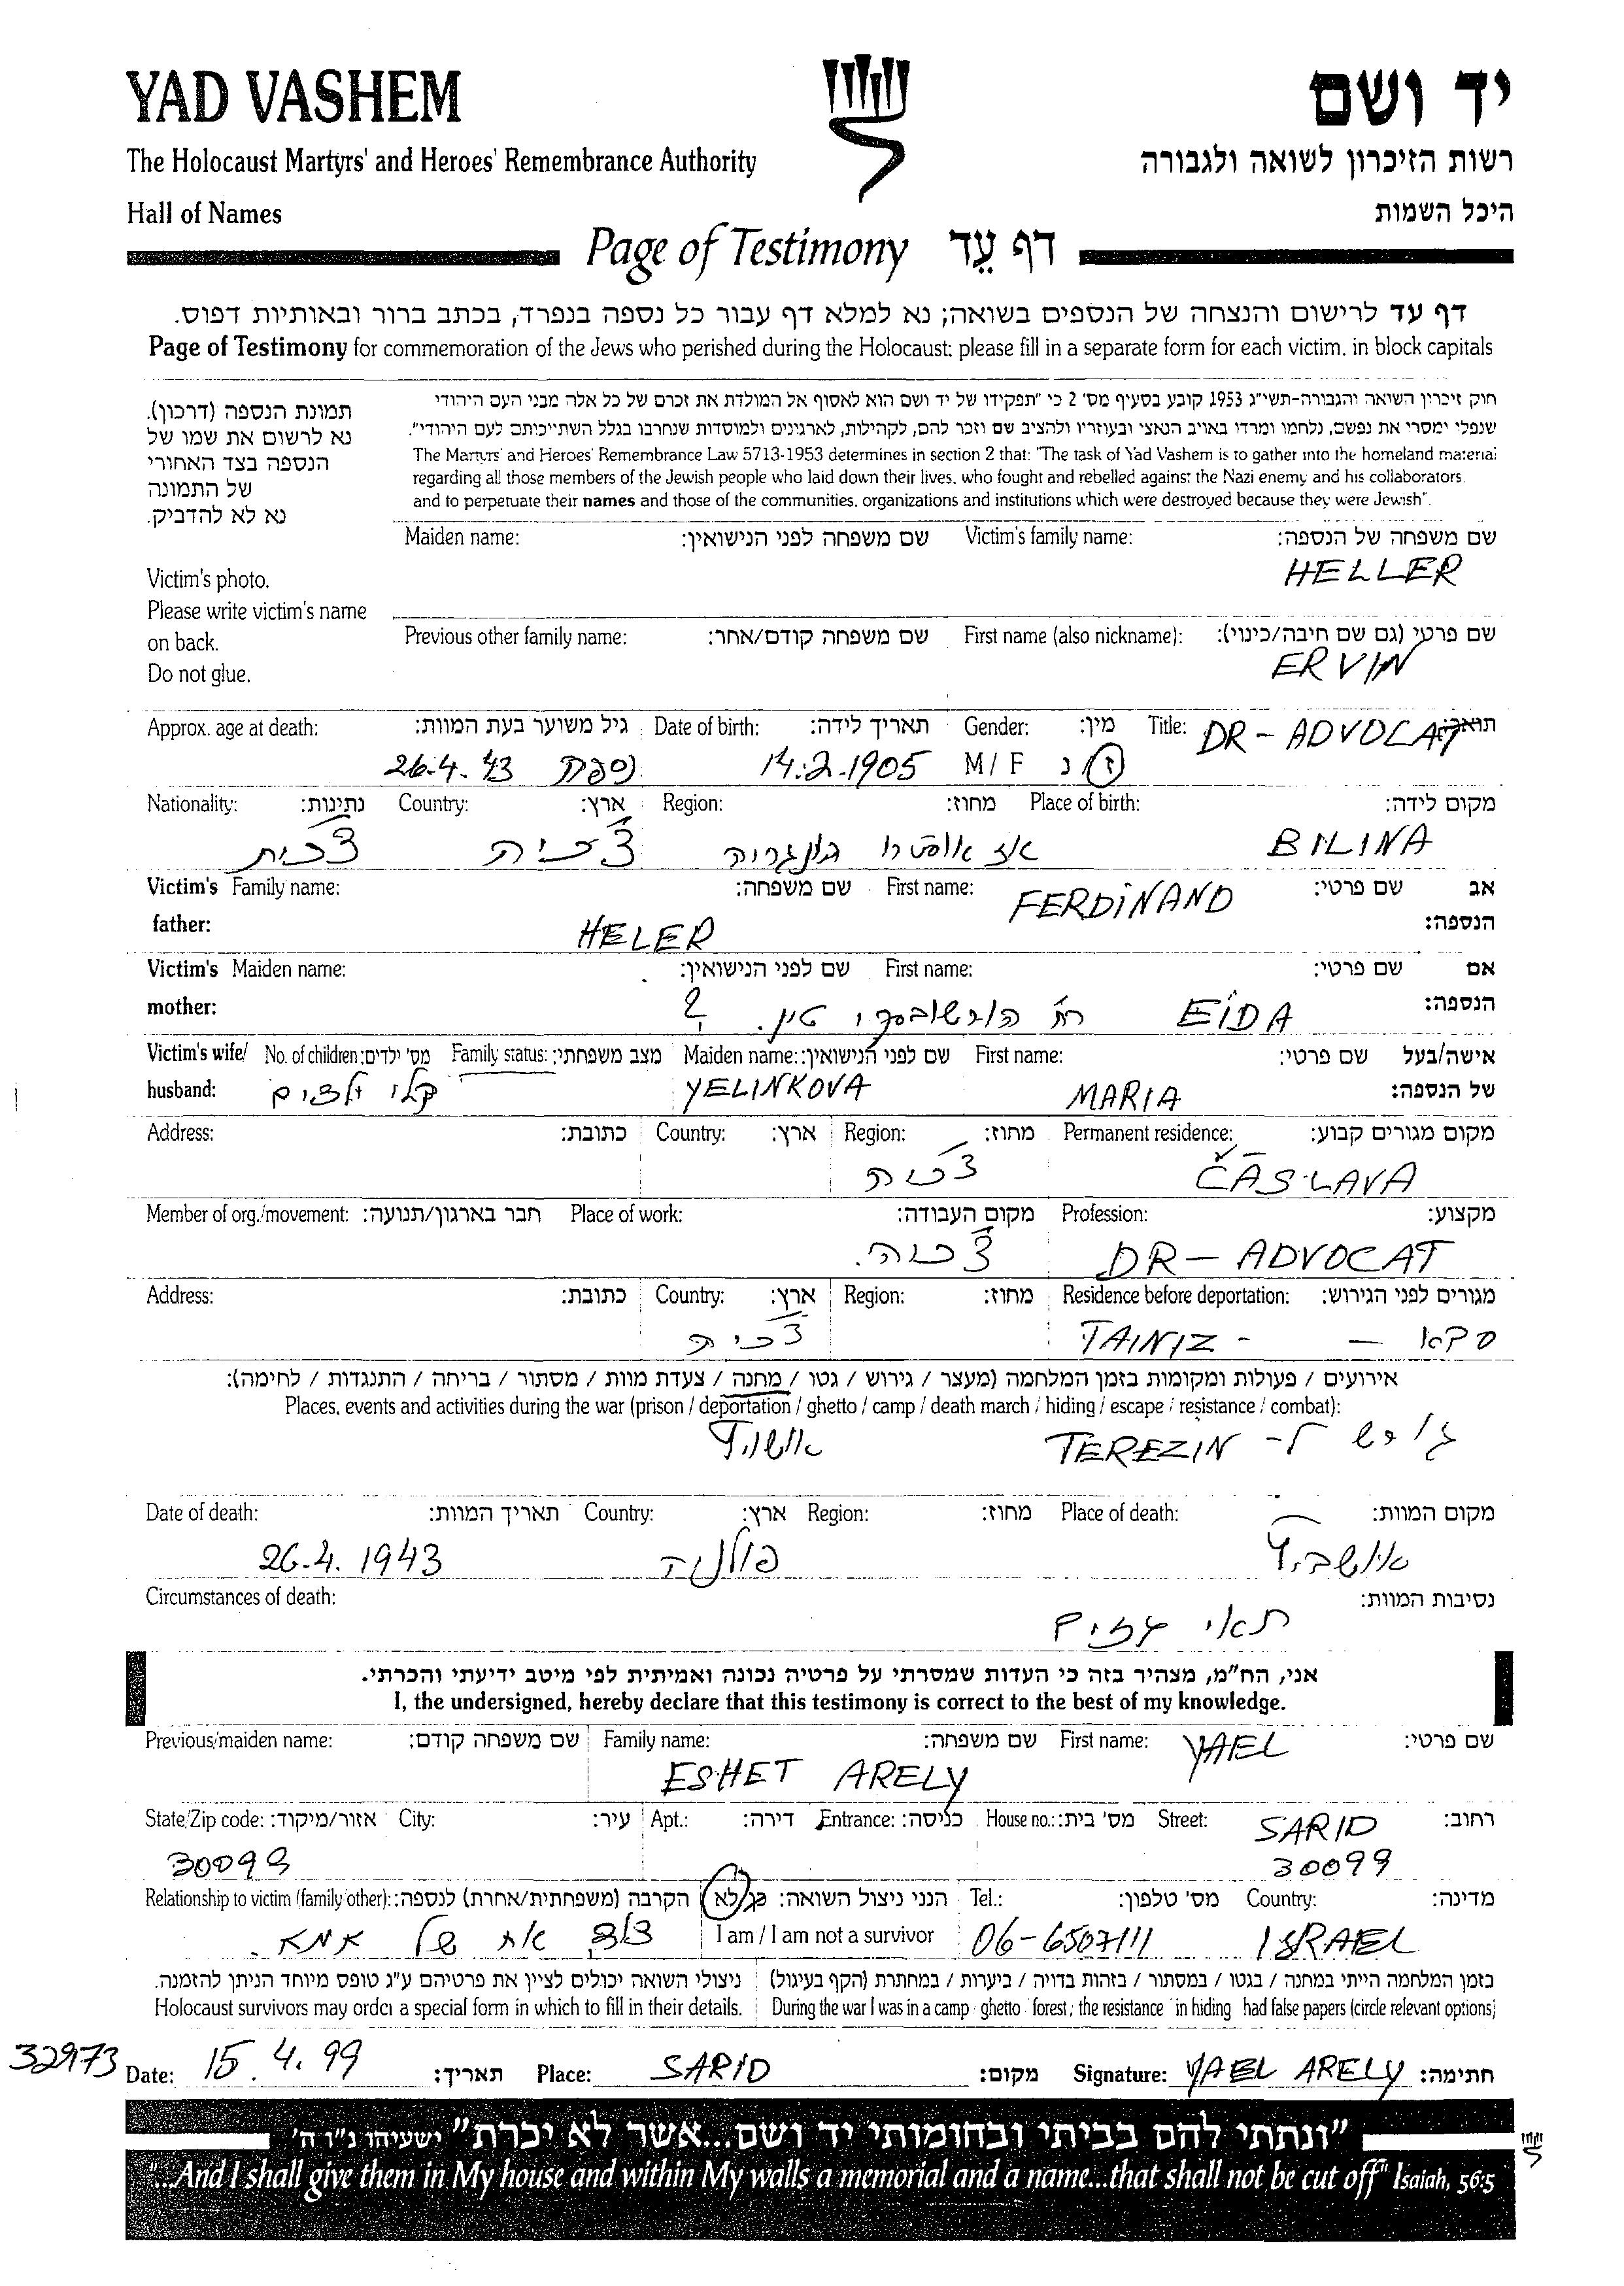 YAD VASHEM יד ושם
The Holocaust Martyrs' and Heroes' Remembrance Authority רשות הזיכרון לשואה ולגבורה
Hall of Names היכל השמות
Page of Testimony דף עֵד
דף עד לרישום והנצחה של הנספים בשואה; נא למלא דף עבור כל נספה בנפרד, בכתב ברור ובאותיות דפוס.
Page of Testimony for commemoration of the Jews who perished during the Holocaust: please fill in a separate form for each victim. in block capitals
תמונת הנספה (דרכון).
נא לרשום את שמו של
הנספה בצד האחורי
של התמונה
נא לא להדביק.
Victim's photo.
Please write victim's name
on back.
Do not glue.
חוק זיכרון השואה והגבורה-תשי"ג 1953 קובע בסעיף מס' 2 כי "תפקידו של יד ושם הוא לאסוף אל המולדת את זכרם של כל אלה מבני העם היהודי
שנפלו ומסרו את נפשם, נלחמו ומרדו באויב הנאצי ובעוזריו ולהציב שם וזכר להם, לקהילות, לארגונים ולמוסדות שנחרבו בגלל השתייכותם לעם היהודי".
The Martyrs' and Heroes' Remembrance Law 5713-1953 determines in section 2 that: "The task of Yad Vashem is to gather into the homeland material
regarding all those members of the Jewish people who laid down their lives, who fought and rebelled against the Nazi enemy and his collaborators.
and to perpetuate their names and those of the communities, organizations and institutions which were destroyed because they were Jewish".
Maiden name: שם משפחה לפני הנישואין: Victim's family name: שם משפחה של הנספה:
HELLER
Previous other family name: שם משפחה קודם/אחר: First name (also nickname): שם פרטי (גם שם חיבה/כינוי):
ERVIN
Approx. age at death: גיל משוער בעת המוות: Date of birth: תאריך לידה: Gender: מין: Title: תואר:
DR - ADVOCAT
26.4.43 נספה 14.2.1905 M / F ז נ
Nationality: נתינות: Country: ארץ: Region: מחוז: Place of birth: מקום לידה:
צ'כית צ'כיה אז אוסטרו הונגריה BILINA
Victim's Family name: שם משפחה: First name: שם פרטי: אב
father: הנספה:
HELER FERDINAND
Victim's Maiden name: שם לפני הנישואין: First name: שם פרטי: אם
mother: הנספה:
? EIDA
Victim's wife/ No. of children: מס' ילדים: Family status: מצב משפחתי: Maiden name: שם לפני הנישואין: First name: שם פרטי: אישה/בעל
husband: של הנספה:
בלי ילדים YELINKOVA MARIA
Address: כתובת: Country: ארץ: Region: מחוז: Permanent residence: מקום מגורים קבוע:
צ'כיה ČASLAVA
Member of org./movement: חבר בארגון/תנועה: Place of work: מקום העבודה: Profession: מקצוע:
צ'כיה. DR - ADVOCAT
Address: כתובת: Country: ארץ: Region: מחוז: Residence before deportation: מגורים לפני הגירוש:
צ'כיה TAINIZ -
אירועים / פעולות ומקומות בזמן המלחמה (מעצר / גירוש / גטו / מחנה / צעדת מוות / מסתור / בריחה / התנגדות / לחימה):
Places, events and activities during the war (prison / deportation / ghetto / camp / death march / hiding / escape / resistance / combat):
גירוש ל- TEREZIN אושוויץ
Date of death: תאריך המוות: Country: ארץ: Region: מחוז: Place of death: מקום המוות:
26.4.1943 פולניה אושביץ
Circumstances of death: נסיבות המוות:
תאי גזים
אני, הח"מ, מצהיר בזה כי העדות שמסרתי על פרטיה נכונה ואמיתית לפי מיטב ידיעתי והכרתי.
I, the undersigned, hereby declare that this testimony is correct to the best of my knowledge.
Previous/maiden name: שם משפחה קודם: Family name: שם משפחה: First name: שם פרטי:
ESHET ARELY YAEL
State/Zip code: אזור/מיקוד: City: עיר: Apt.: דירה: Entrance: כניסה: House no.: מס' בית: Street: רחוב:
SARID
30099 30099
Relationship to victim (family/other): הקרבה (משפחתית/אחרת) לנספה: הנני ניצול השואה: כן/לא Tel.: מס' טלפון: Country: מדינה:
של אמא. I am / I am not a survivor 06-6507111 ISRAEL
בזמן המלחמה הייתי במחנה / בגטו / במסתור / בזהות בדויה / ביערות / במחתרת (הקף בעיגול) ניצולי השואה יכולים לציין את פרטיהם ע"ג טופס מיוחד הניתן להזמנה.
Holocaust survivors may order a special form in which to fill in their details. During the war I was in a camp ghetto forest / the resistance in hiding had false papers (circle relevant options)
32973 Date: 15.4.99 תאריך: Place: SARID מקום: Signature: YAEL ARELY חתימה:
"ונתתי להם בביתי ובחומותי יד ושם...אשר לא יכרת" ישעיהו נ"ו ה'
"...And I shall give them in My house and within My walls a memorial and a name...that shall not be cut off" Isaiah, 56:5